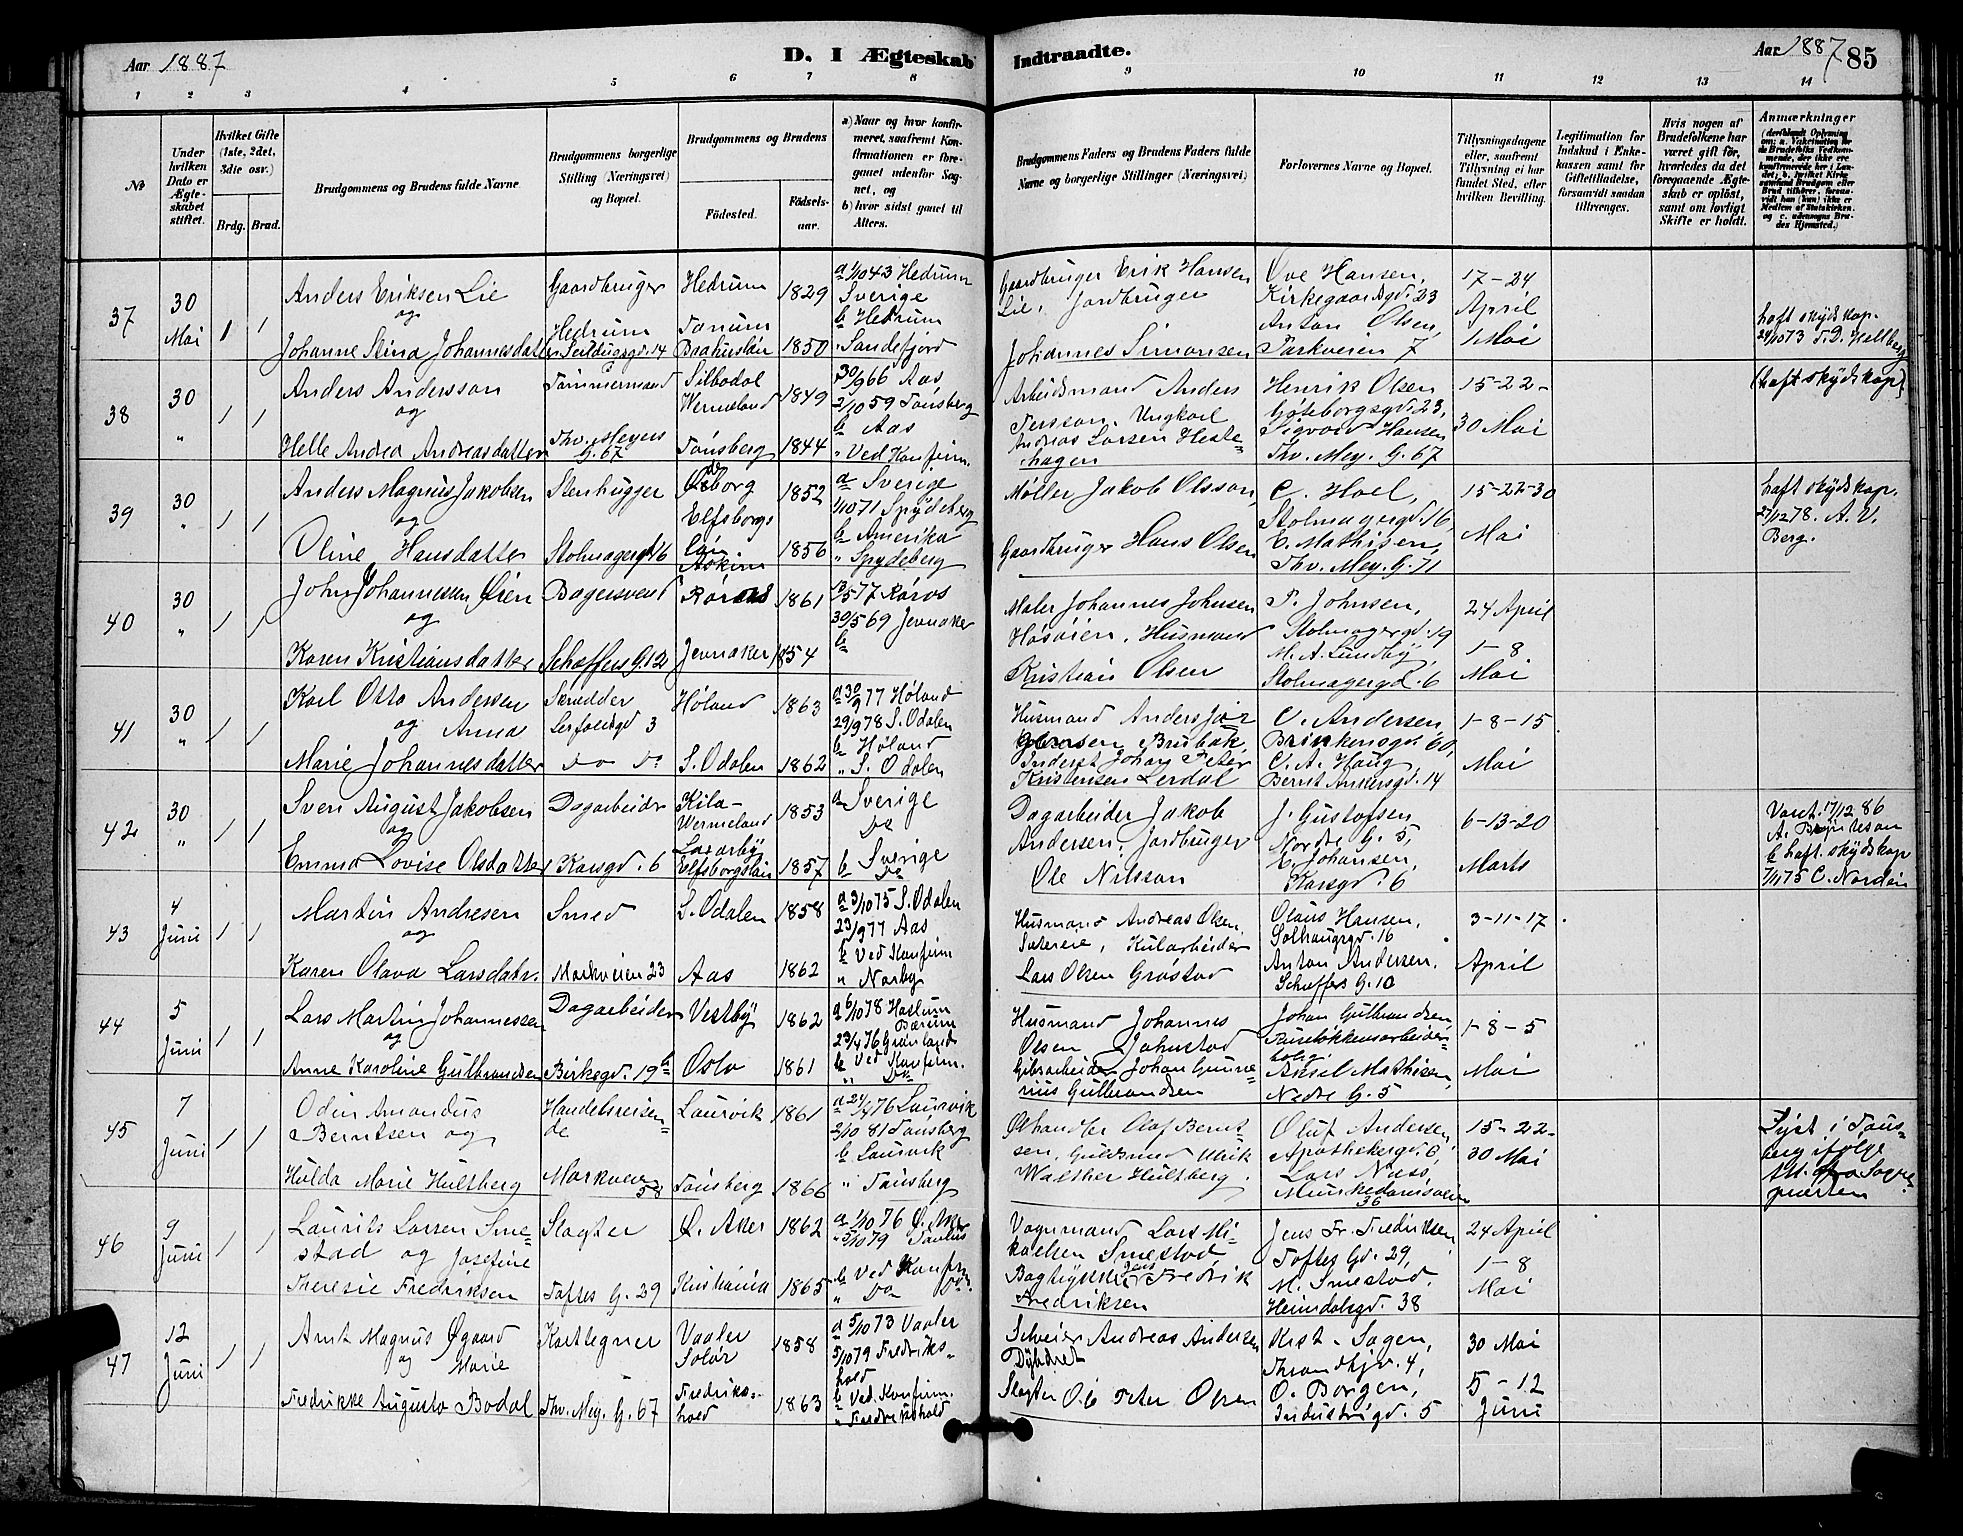 Aar 1887
D. I Ægteskab Indtraadte.
Aar 1887
85
1 2 3 4 5 6 7 8 9 10 11 12 13 14
№
Under hvilken Dato er Ægteskabet stiftet.
Hvilket Gifte (1ste, 2det, 3die osv.)
Brdg. Brud.
Brudgommens og Brudens fulde Navne
Brudgommens borgerlige Stilling (Næringsvei) og Bopæl.
Brudgommens og Brudens
Fødested.
Fødselsaar.
a) Naar og hvor konfirmeret, saafremt Konfirmationen er foregaaet udenfor Sognet, og
b) hvor sidst gaaet til Alters.
Brudgommens Faders og Brudens Faders fulde Navne og borgerlige Stillinger (Næringsvei)
Forlovernes Navne og Bopæl.
Tillysningsdagene eller, saafremt Tillysning ei har fundet Sted, efter hvilken Bevilling.
Legitimation for Indskud i Enkekassen samt for Giftetilladelse, forsaavidt saadan tiltrænges.
Hvis nogen af Brudefolkene har været gift før, hvorledes da det foregaaende Ægteskab er opløst, samt om lovligt Skifte er holdt.
Anmærkninger
37
30 Mai
1 1
Anders Eriksen Lie
og
Johanne Stina Johannesdatter
Gaardbruger
Hedrum
Seildugsgd. 14
Hedrum 1829
Tanum
Baahuslän 1850
a 1/10 43 Hedrum
Sverige
b Hedrum
" Sandefjord
Gaardbruger Erik Hansen
Lie, Jordbruger
Johannes Simonsen
Ove Hansen,
Kirkegaardsgd. 23
Anton Olsen,
Parkveien 7
17-24
April
1 Mai
haft skydskop.
24/10 73 T. D. Hellberg
38
30
"
1 1
Anders Andersson
og
Helle Andrea Andreasdatter
Tømmermand
Thv. Meyers
G. 67
Silbodal
Wermeland 1849
Tønsberg 1844
30/9 66 Aas
2/10 59 Tønsberg
b Aas
" Ved Konfirm.
Arbeidsmand Anders
Persson, Ungkarl
Andreas Larsen Hestehagen
Henrik Olsen
Gøteborgsgd. 23,
Sigvard Hansen
Thv. Mey. G. 67
15-22-
30 Mai
(haft skydskop)
39
30
"
1 1
Anders Magnus Jakobsen
og
Oline Hansdatter
Stenhugger
Stolmagergd. 16
Ødborg
Elfsborgs
län 1852
Askim 1856
a Sverige
1/10 71 Spydeberg
b Amerika
" Spydeberg
Møller Jakob Olsson,
Gaardbruger Hans Olsen
C. Hoel,
Stolmagergd. 16
C. Mathisen,
Thv. Mey. G. 71
15-22-30
Mai
haft skydskop.
27/12 78. A. V.
Berg.
40
30
"
1 1
John Johannessen Øien
og
Karen Kristiansdatter
Bagersvend
Schæffers G. 12
Røraas 1861
Jevnaker 1854
13/5 77 Røros
30/5 69 Jevnaker
b
Maler Johannes Johnsen
Høsøien, Husmand
Kristian Olsen
P. Johnsen,
Stolmagergd. 19
M. A. Lundby,
Stolmagergd. 6
24 April
1-8
Mai
41
30
"
1 1
Karl Otto Andersen
og Anna
Marie Johannesdatter
Skrædder
Leirfaldsgd 3
Do Do
Høland 1863
S. Odalen 1862
a 30/9 77 Høland
29/9 78 S. Odalen
b Høland
" S. Odalen
Husmand Anders
Brubak,
Inderst Johan Peter
Kristensen Lerdal
C. Andersen,
Brinkensgd. 60,
C. A. Haug
Bernt Ankersgd. 14
1-8-15
Mai
42
30
"
1 1
Sven August Jakobsen
og
Emma Lovise Olsdatter
Dagarbeider
Korsgd. 6
Kila-
Wermeland 1853
Laxarby
Elfsborgslän 1857
a Sverige
Do
b Sverige
Do
Dagarbeider Jakob
Andersen, Jordbruger
Ole Nilsson
J. Gustafsen
Nordre G. 5,
C. Johansen,
Korsgd. 6
6-13-20
Marts
Varet. 17/12 86
A.
b haft. skydskop
7/11 75 C. Nordin
43
4
Juni
1 1
Martin Andresen
og
Karen Olava Larsdatr.
Smed
Markveien 23
S. Odalen 1858
Aas 1862
a 3/10 75 S. Odalen
23/9 77 Aas
b Ved Konfirm
" Norby
Husmand Andreas Olsen
Sætereie, Kularbeider
Lars Olsen Grøstad
Olaus Hansen,
Solhaugsgd. 16
Anton Andersen.
Schæffers G. 10
3-11-17
April
44
5
Juni
1 1
Lars Martin Johannessen
og
Anne Karoline Gulbrandsen
Dagarbeider
Birkegd. 19b
Vestby 1862
Oslo 1861
a 6/10 78 Haslum
Bærum
23/4 76 Grønland
b Ved Konfirm.
" Do
Husmand Johannes
Olsen Jahnstad
Johan Gunnerius Gulbrandsen
Johan Gulbrandsen,
Ruseløkkens arbeiderbolig
Aksel Mathisen,
Nedre G. 5
1-8-5
Mai
45
7
Juni
1 1
Odin Amandus
Berntsen og
Hulda Marie Hultberg
Handelsreisende
Markveien 58
Laurvik 1861
Tønsberg 1866
a 24/4 76 Laurvik
2/10 81 Tønsberg
b Laurvik
" Tønsberg
Olaf Berntsen, Guldsmed Ulrik
Walther Hultberg.
Oluf Andersen,
Apothekergd. 6,
Lars Næss,
Munkedamsveien
36
15-22-
30 Mai
Lyst i Tønsberg ifølge
Att. fra Sognepræsten
46
9
Juni
1 1
Laurits Larsen Smestad og Josefine
Theresie Fredriksen
Slagter
Toftes G. 29
Ø. Aker 1862
Kristiania 1865
a 1/10 76 Ø. Aker
" 5/10 79 Paulus
b Ved Konfirm
" Do Do
Vognmand Lars Mikaelsen Smestad
Bogtrykker Jens Fredrik
Fredriksen
Jens Fr. Fredriksen
Toftes Gd. 29,
M. Smestad,
Heimdalsgd. 38
24 April
1-8
Mai
47
12
Juni
1 1
Arnt Magnus Øgaard
og Marie
Fredrikke Augusta Bodal
Karttegner
Thv. Mey. G. 67
Vaaler
Solør 1858
Fredrikshald 1863
a 5/10 73 Vaaler
5/10 79 Fredrikshald
b Ved. Konfirm.
" Fredrikshald
Selveier Andreas Andersen
Dybdret
Slagter Ole Peter Olsen
Krist. Sagen,
Throndhjv. 4,
O. Borgen,
Industrigd. 5
30 Mai
5-12
Juni